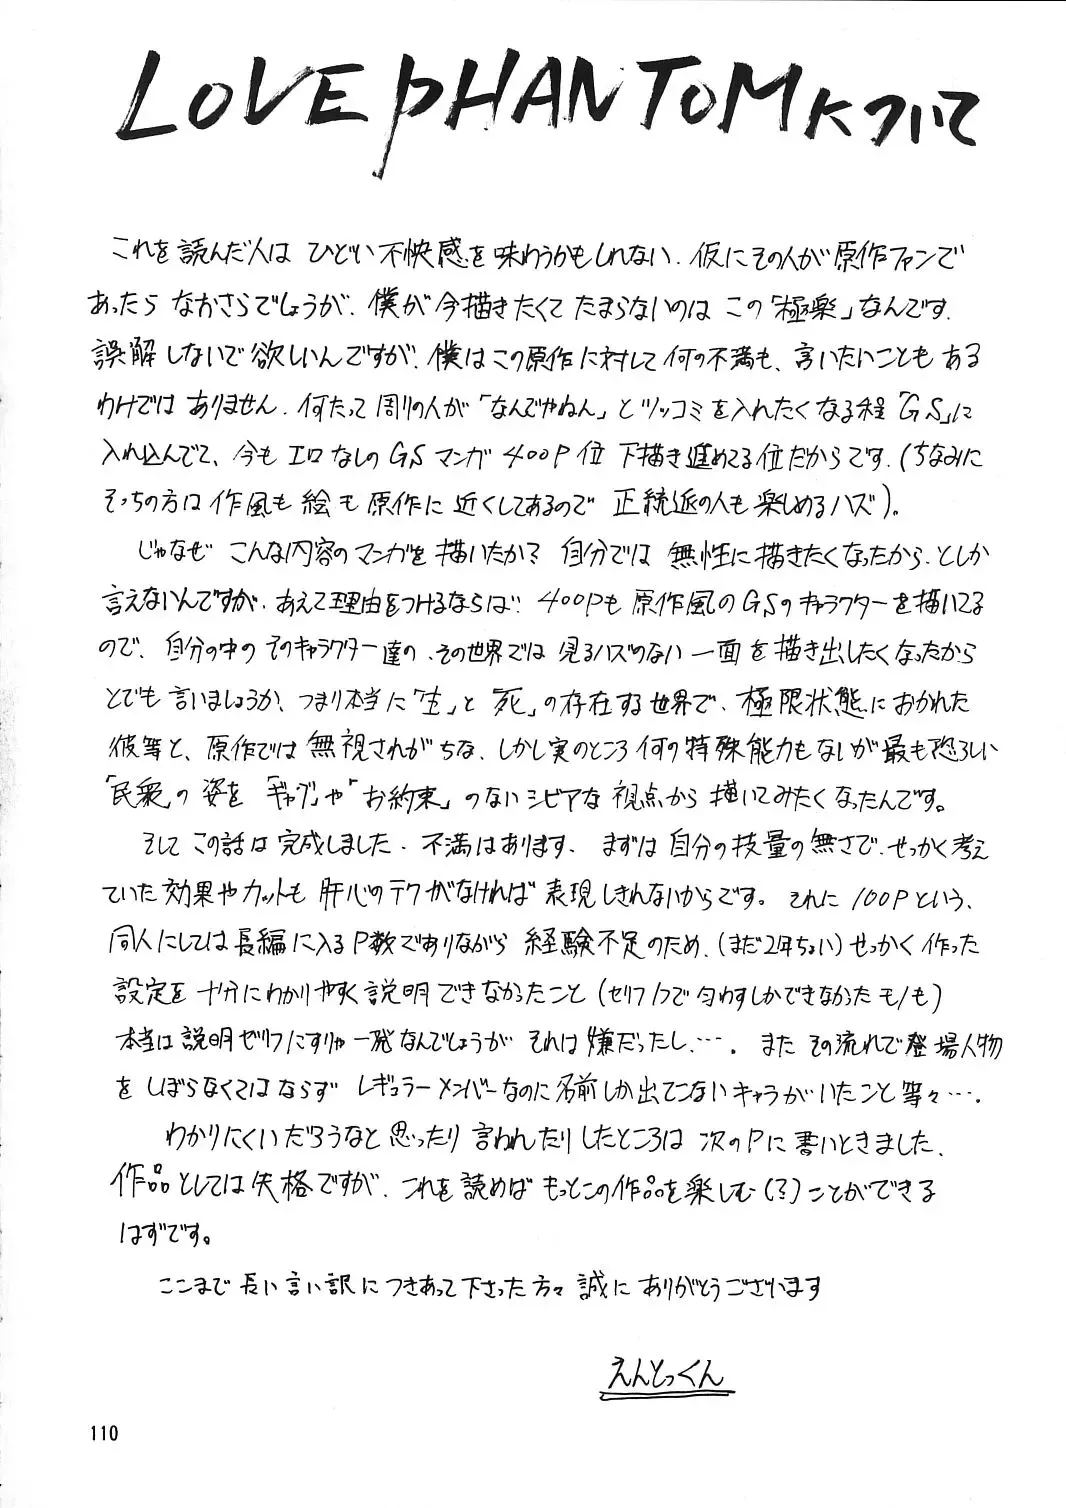 LOVE PHANTOMについて
これを読んだ人は ひどい不快感を味わうかもしれない．仮にその人が原作ファンで
あったら なおさらでしょうが．僕が今描きたくて たまらないのは この「極楽」なんです．
誤解しないで欲しいんですが．僕はこの原作に対して何の不満も、言いたいことも ある
わけでは ありません．何たって 周りの人が「なんでやねん」とツッコミを入れたくなる程「GS」に
入れ込んでて、今も エロなしのGSマンガ 400P位 下描き進めてる位だからです．(ちなみに
そっちの方は作風も絵も原作に近くしてあるので 正統派の人も楽しめるハズ)。
じゃなぜ こんな内容のマンガを描いたか？ 自分では 無性に描きたくなったから．としか
言えないんですが．あえて理由をつけるならば？ 400Pも原作風のGSのキャラクターを描いてる
ので、自分の中の そのキャラクター達の、その世界では 見るハズのない 一面を描き出したくなったから
とでも言いましょうか、つまり本当に「生」と「死」の存在する世界で、極限状態におかれた
彼等と、原作では無視されがちな、しかし実のところ何の特殊能力もないが最も恐ろしい
「民衆」の姿を「ギャグ」や「お約束」のないシビアな視点から描いてみたくなったんです。
そしてこの話は完成しました．不満はあります、まずは自分の技量の無さで、せっかく考え
ていた効果やカットも肝心のテクがなければ表現しきれないからです。それに100Pという、
同人にしては長編に入るP数でありながら 経験不足のため、(まだ2年ちょい)せっかく作った
設定を十分にわかりやすく説明できなかったこと(セリフ1つで匂わすしかできなかったモノも)
本当は説明ゼリフにすりゃ一発なんでしょうが それは嫌だったし、…．また その流れで登場人物
を しぼらなくてはならず レギュラーメンバーなのに名前しか出てこないキャラがいたこと等々…．
わかりにくいだろうなと思ったり言われたりしたところは 次のPに書いときました．
作品としては失格ですが．これを読めば もっとこの作品を楽しむ(？)ことができる
はずです。
ここまで長い言い訳につきあって下さった方々 誠に ありがとうございます
えんとっくん
110